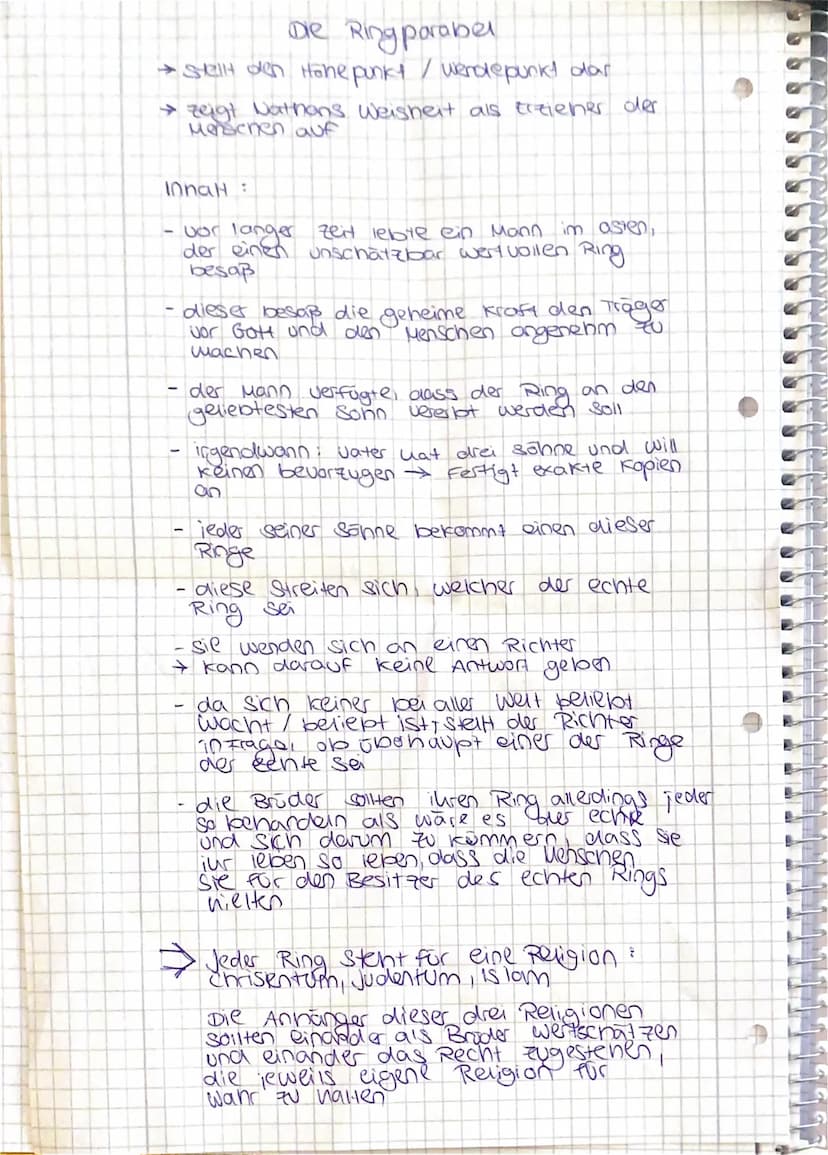 Die Ringparabel
→ stellt den Höhepunkt / Wendepunkt dar
→ zeigt Nathans Weisheit als Erzieher der
Menschen auf
Inhalt :
- vor langer Zeit lebte ein Mann im Osten,
der einen unschätzbar wertvollen Ring
besaß
- dieser besaß die geheime Kraft den Träger
vor Gott und den Menschen angenehm zu
machen
- der Mann verfügte, dass der Ring an den
geliebtesten Sohn vererbt werden soll
- irgendwann: Vater hat drei Söhne und will
keinen bevorzugen → Fertigt exakte Kopien
an
- jeder seiner Söhne bekommt einen dieser
Ringe
- diese streiten sich, welcher der echte
Ring sei
- sie wenden sich an einen Richter
→ kann darauf keine Antwort geben
- da sich keiner bei aller Welt beliebt
macht / beliebt ist, stellt der Richter
in Frage, ob überhaupt einer der Ringe
der echte sei
- die Brüder sollten ihren Ring allerdings jeder
so behandeln als wäre es der echte
und sich darum zu kümmern, dass sie
ihr leben so leben, dass die Menschen
sie für den Besitzer des echten Rings
hielten
⇒ Jeder Ring steht für eine Religion :
Chrisentum, Judentum, Islam
Die Anhänger dieser drei Religionen
sollten einander als Brüder wertschätzen
und einander das Recht zugestehen,
die jeweils eigene Religion für
wahr zu halten